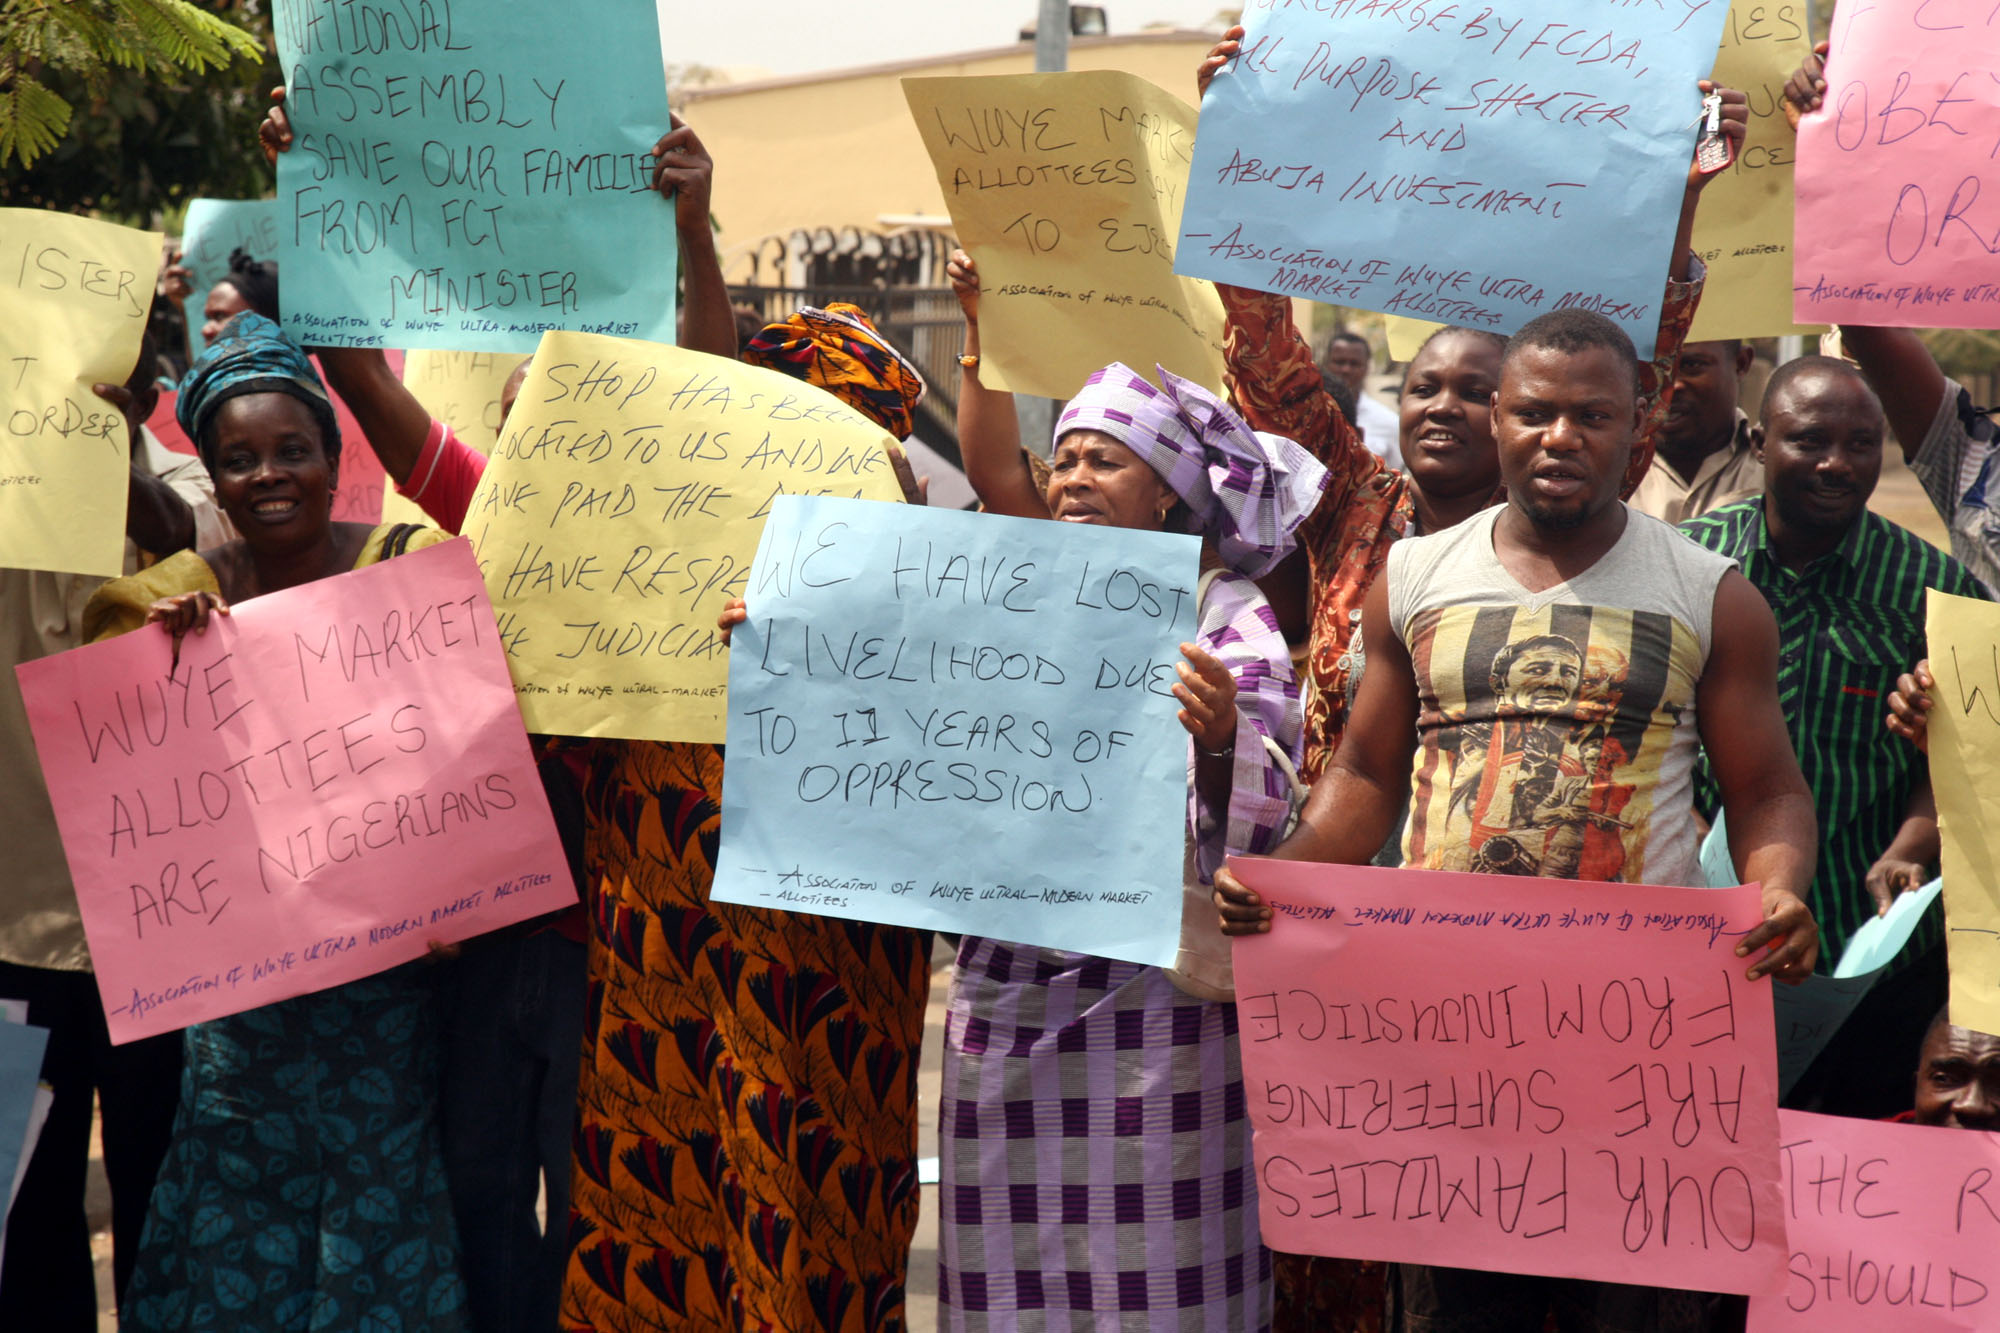 NATIONAL
ASSEMBLY
SAVE OUR FAMILIE
FROM FCT
MINISTER
- ASSOCIATION OF WUYE ULTRA-MODERN MARKET
ALLOTTEES
WUYE MARK
ALLOTTEES SAY
TO EJE
- ASSOCIATION OF WUYE ULTRA
SURCHARGE BY FCDA,
ALL PURPOSE SHELTER
AND
ABUJA INVESTMENT
- ASSOCIATION OF WUYE ULTRA MODERN
MARKET ALLOTTEES
IES
ICE
KET ALLOTTEES
F CT
OBEY
OR
- ASSOCIATION OF WUYE ULTR
ISTER
T
ORDER
WE
AMA
SHOP HAS BEEN
LOCATED TO US AND WE
HAVE PAID THE
HAVE RESPE
THE JUDICIA
CIATION OF WUYE ULTRAL-MARKET
WUYE MARKET
ALLOTTEES
ARE NIGERIANS
- ASSOCIATION OF WUYE ULTRA MODERN MARKET ALLOTTEES
WE HAVE LOST
LIVELIHOOD DUE
TO 11 YEARS OF
OPPRESSION.
- ASSOCIATION OF WUYE ULTRAL-MODERN MARKET
- ALLOTTEES.
OUR FAMILIES
ARE SUFFERING
FROM INJUSTICE
- ASSOCIATION OF WUYE ULTRA MODERN MARKET ALLOTTEES
W
THE R
SHOULD